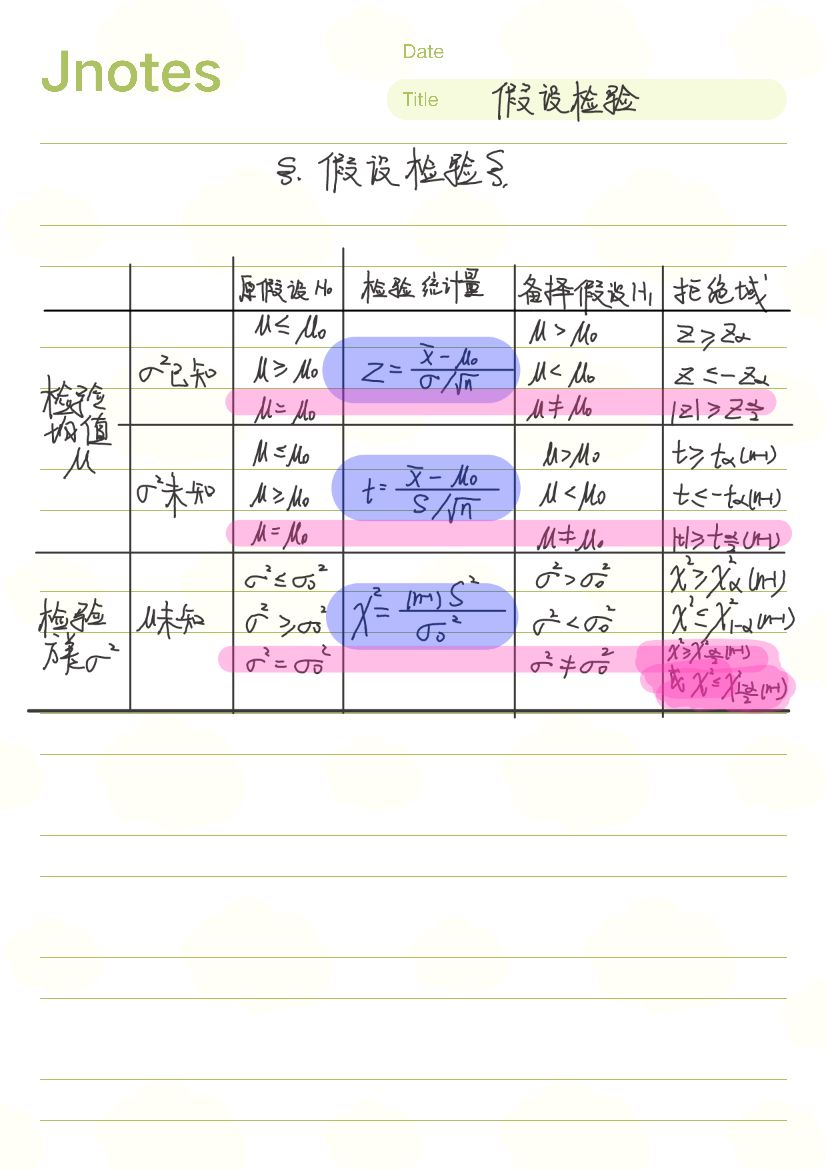 Jnotes
Date
Title 假设检验
§. 假设检验 §.
原假设 H₀ 检验统计量 备择假设 H₁ 拒绝域
检验均值 μ
σ²已知
μ ≤ μ₀ μ > μ₀ z ≥ zα
μ ≥ μ₀ z = (x̄ - μ₀)/(σ/√n) μ < μ₀ z ≤ -zα
μ = μ₀ μ ≠ μ₀ |z| ≥ z_{α/2}
σ²未知
μ ≤ μ₀ μ > μ₀ t ≥ tα(n-1)
μ ≥ μ₀ t = (x̄ - μ₀)/(S/√n) μ < μ₀ t ≤ -tα(n-1)
μ = μ₀ μ ≠ μ₀ |t| ≥ t_{α/2}(n-1)
检验方差 σ²
μ未知
σ² ≤ σ₀² σ² > σ₀² χ² ≥ χ²α(n-1)
σ² ≥ σ₀² χ² = (n-1)S²/σ₀² σ² < σ₀² χ² ≤ χ²_{1-α}(n-1)
σ² = σ₀² σ² ≠ σ₀² χ² ≥ χ²_{α/2}(n-1)
或 χ² ≤ χ²_{1-α/2}(n-1)